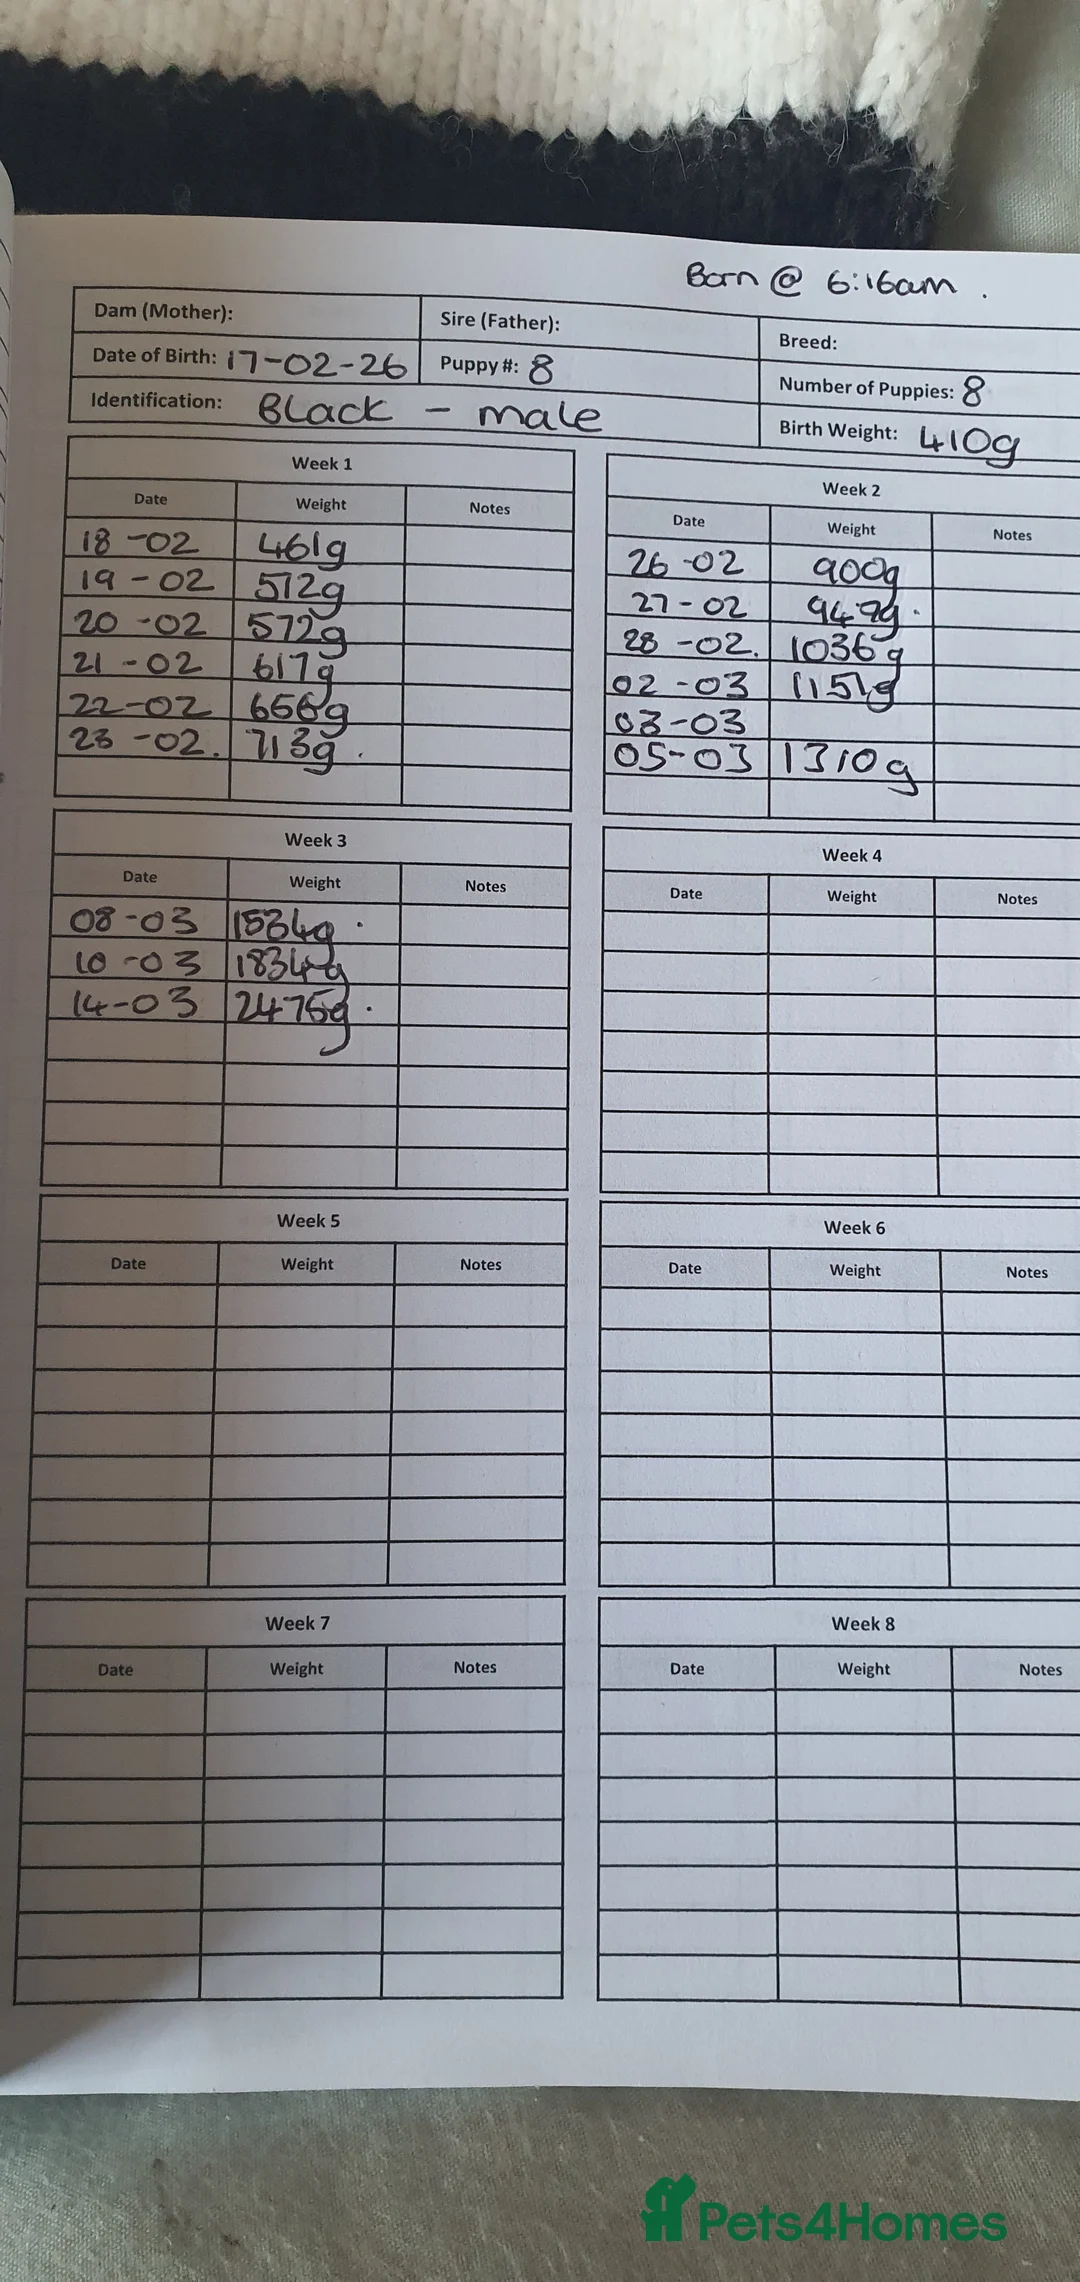 Born @ 6:16am .
Dam (Mother):
Sire (Father):
Breed:
Date of Birth: 17-02-26
Puppy #: 8
Number of Puppies: 8
Identification: Black - male
Birth Weight: 410g
Week 1
Date Weight Notes
18-02 461g
19-02 512g
20-02 572g
21-02 617g
22-02 656g
23-02. 713g.
Week 2
Date Weight Notes
26-02 900g
27-02 949g.
28-02. 1036g
02-03 1151g
03-03
05-03 1310g
Week 3
Date Weight Notes
08-03 1534g.
10-03 1834g
14-03 2475g.
Week 4
Date Weight Notes
Week 5
Date Weight Notes
Week 6
Date Weight Notes
Week 7
Date Weight Notes
Week 8
Date Weight Notes
Pets4Homes